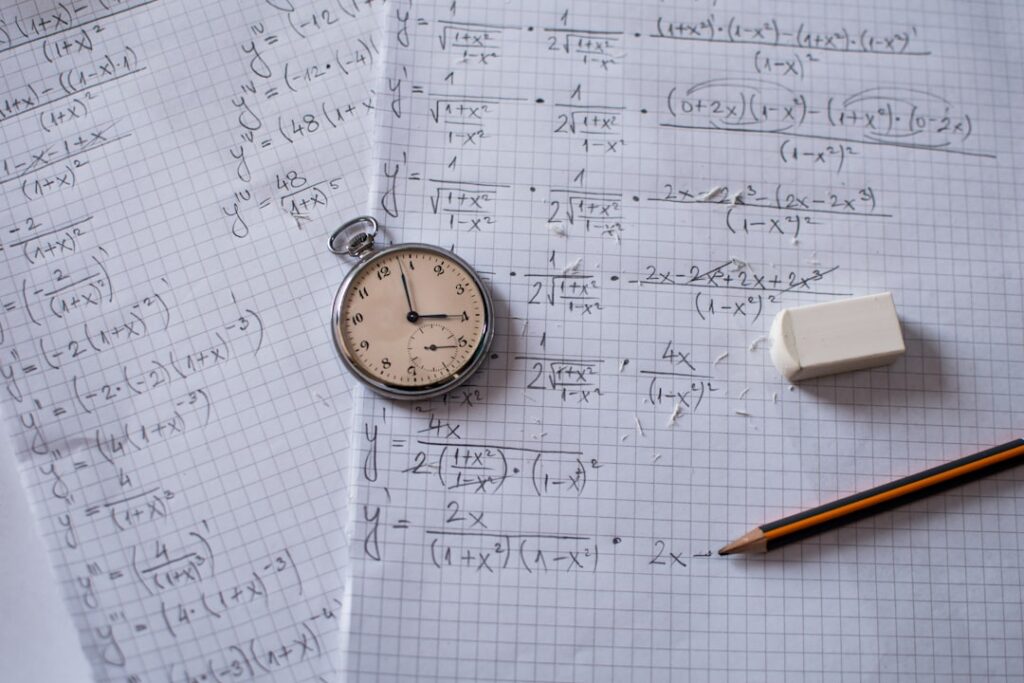 (1+x)−(
(1+x)²
1+x)−((1−x)·1)
(1+x)²
1−x−1+x
(1+x)²
−2
(1+x)²
= (−2/(1+x)²)'
y'' = (−2(1+x)⁻²)'
y'' = (−2·(−2)(1+x)⁻³)
y'' = (4(1+x)⁻³)
y'' = 4/(1+x)³
y''' = (4/(1+x)³)'
y''' = (4·(1+x)⁻³)'
·(−3)(1+x)⁻⁴
yᴵⱽ = (−12(1
yᴵⱽ = (−12·(−4)
yᴵⱽ = (48(1+x
yᴵⱽ = 48/(1+x)⁵
y' = 1/√((1+x²)/(1−x²)) · 1/(2√((1+x²)/(1−x²))) · ((1+x²)'·(1−x²)−(1+x²)·(1−x²)')/(1−x)²
y' = 1/√((1+x²)/(1−x²)) · 1/(2√((1+x²)/(1−x²))) · ((0+2x)(1−x²)−(1+x²)·(0−2x))/(1−x²)²
y' = 1/√((1+x²)/(1−x²)) · 1/(2√((1+x²)/(1−x²))) · (2x−2x³−(2x−2x³))/(1−x²)²
· 1/(2√((1+x²)/(1−x²))) · (2x−2x³+2x+2x³)/(1−x²)²
1−x² · 1/(2√((1+x²)/(1−x²))) · 4x/(1−x²)²
y' = 4x/(2((1+x²)/(1−x²))·(1−x²)²)
y' = 2x/((1+x²)(1−x²)) · 2x −
12 1 2 3 4 8 9 10 11